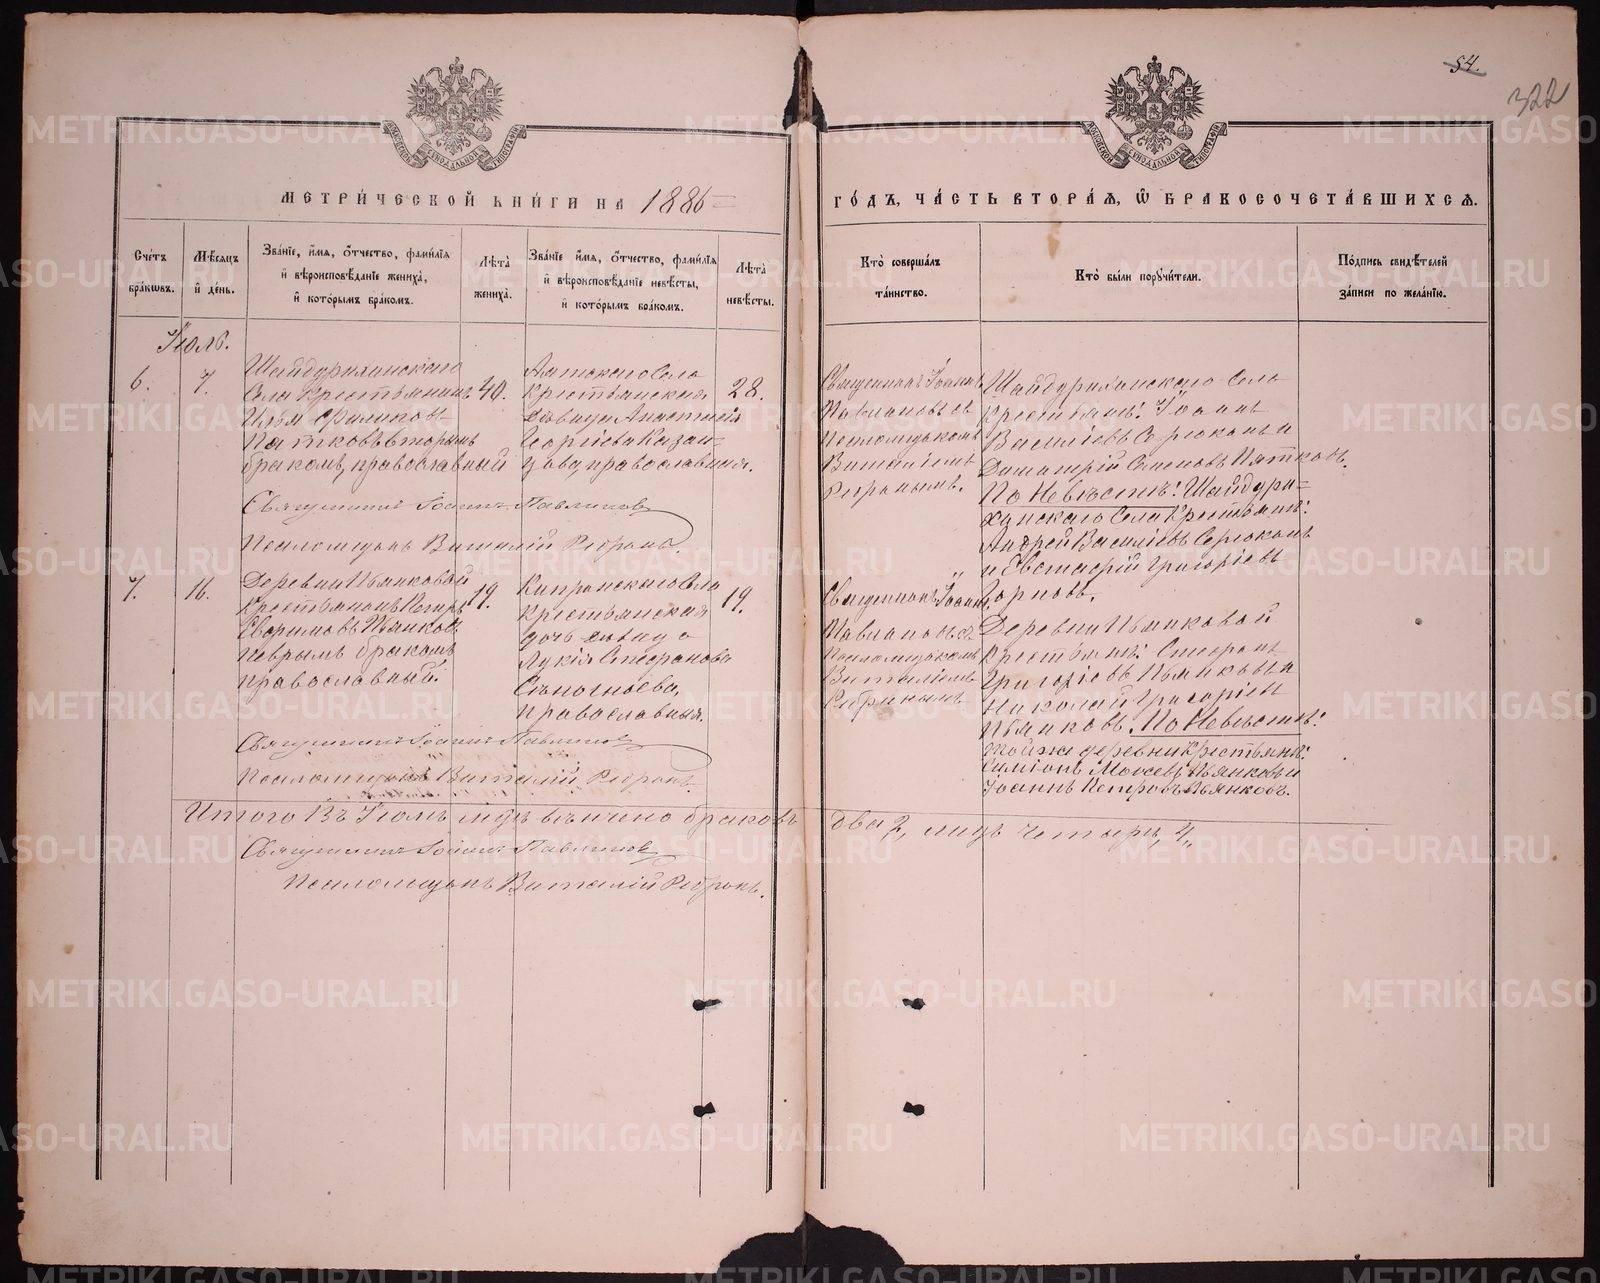 54.
322
МОСКОВСКОЙ СѴНОДАЛЬНОЙ ТИПОГРАФІИ
МОСКОВСКОЙ СѴНОДАЛЬНОЙ ТИПОГРАФІИ
МЕТРИ́ЧЕСКОЙ КНИ́ГИ НА 1886
ГО́ДЪ, ЧА́СТЬ ВТОРА́Я, Ѡ҆ БРАКОСОЧЕТА́ВШИХСЯ.
Сче́тъ бра́кѡвъ.
Мѣ́сяцъ и҆ де́нь.
Зва́нїе, и҆́мя, ѻ҆́тчество, фами́лїя
и҆ вѣроисповѣ́данїе жениха̀,
и҆ кото́рымъ бра́комъ.
Лѣ́та̀ жениха̀.
Зва́нїе, и҆́мя, ѻ҆́тчество, фами́лїя
и҆ вѣроисповѣ́данїе невѣ́сты,
и҆ кото́рымъ бра́комъ.
Лѣ́та̀ невѣ́сты.
Кто̀ соверша́лъ
та́инство.
Кто̀ бы́ли порꙋчи́тели.
По́дпись свидѣ́телей
за́писи по жела́нїю.
Іюль.
6.
7.
Шайдурихинскаго
Села Крестьянинъ
Илья Филиповъ
Пятковъ вторымъ
бракомъ, православный
40.
Села
Крестьянская
девица Анастасія
Георгіева Казан-
цова, православная.
28.
Священникъ Іоаннъ
Павлиновъ съ
Псаломщикомъ
Виталіемъ
Шайдурихинскаго Села
крестьяне: Іоаннъ
Васильевъ Серюковъ и
Димитрій Семеновъ Пятковъ.
По Невѣстѣ: Шайдури=
хинскаго Села Крестьяне:
Андрей Васильевъ
и Евстафій Григорьевъ
Горновъ.
Священникъ Іоаннъ Павлиновъ
Псаломщикъ Виталій
7.
16.
Деревни Пьянковой
Крестьянинъ Петръ
Ефримовъ Пьянковъ
первымъ бракомъ
православный.
19.
Кипринскаго села
крестьянская
дочь девица
Лукія Стефанова
православная.
19.
Священникъ Іоаннъ
Павлиновъ съ
Псаломщикомъ
Виталіемъ
Деревни Пьянковой
крестьяне: Стефанъ
Григорьевъ Пьянковъ и
Николай Григорьевъ
Пьянковъ. По Невѣстѣ:
тойже деревни крестьяне:
Симіонъ Моисеевъ Пьянковъ и
Іоаннъ Петровъ Пьянковъ.
Священникъ Іоаннъ Павлиновъ
Псаломщикъ Виталій
Итого въ Іюлѣ м-цѣ вѣнчано браковъ два 2, лицъ четыре, 4,,
Священникъ Іоаннъ Павлиновъ
Псаломщикъ Виталій
METRIKI.GASO-URAL.RU